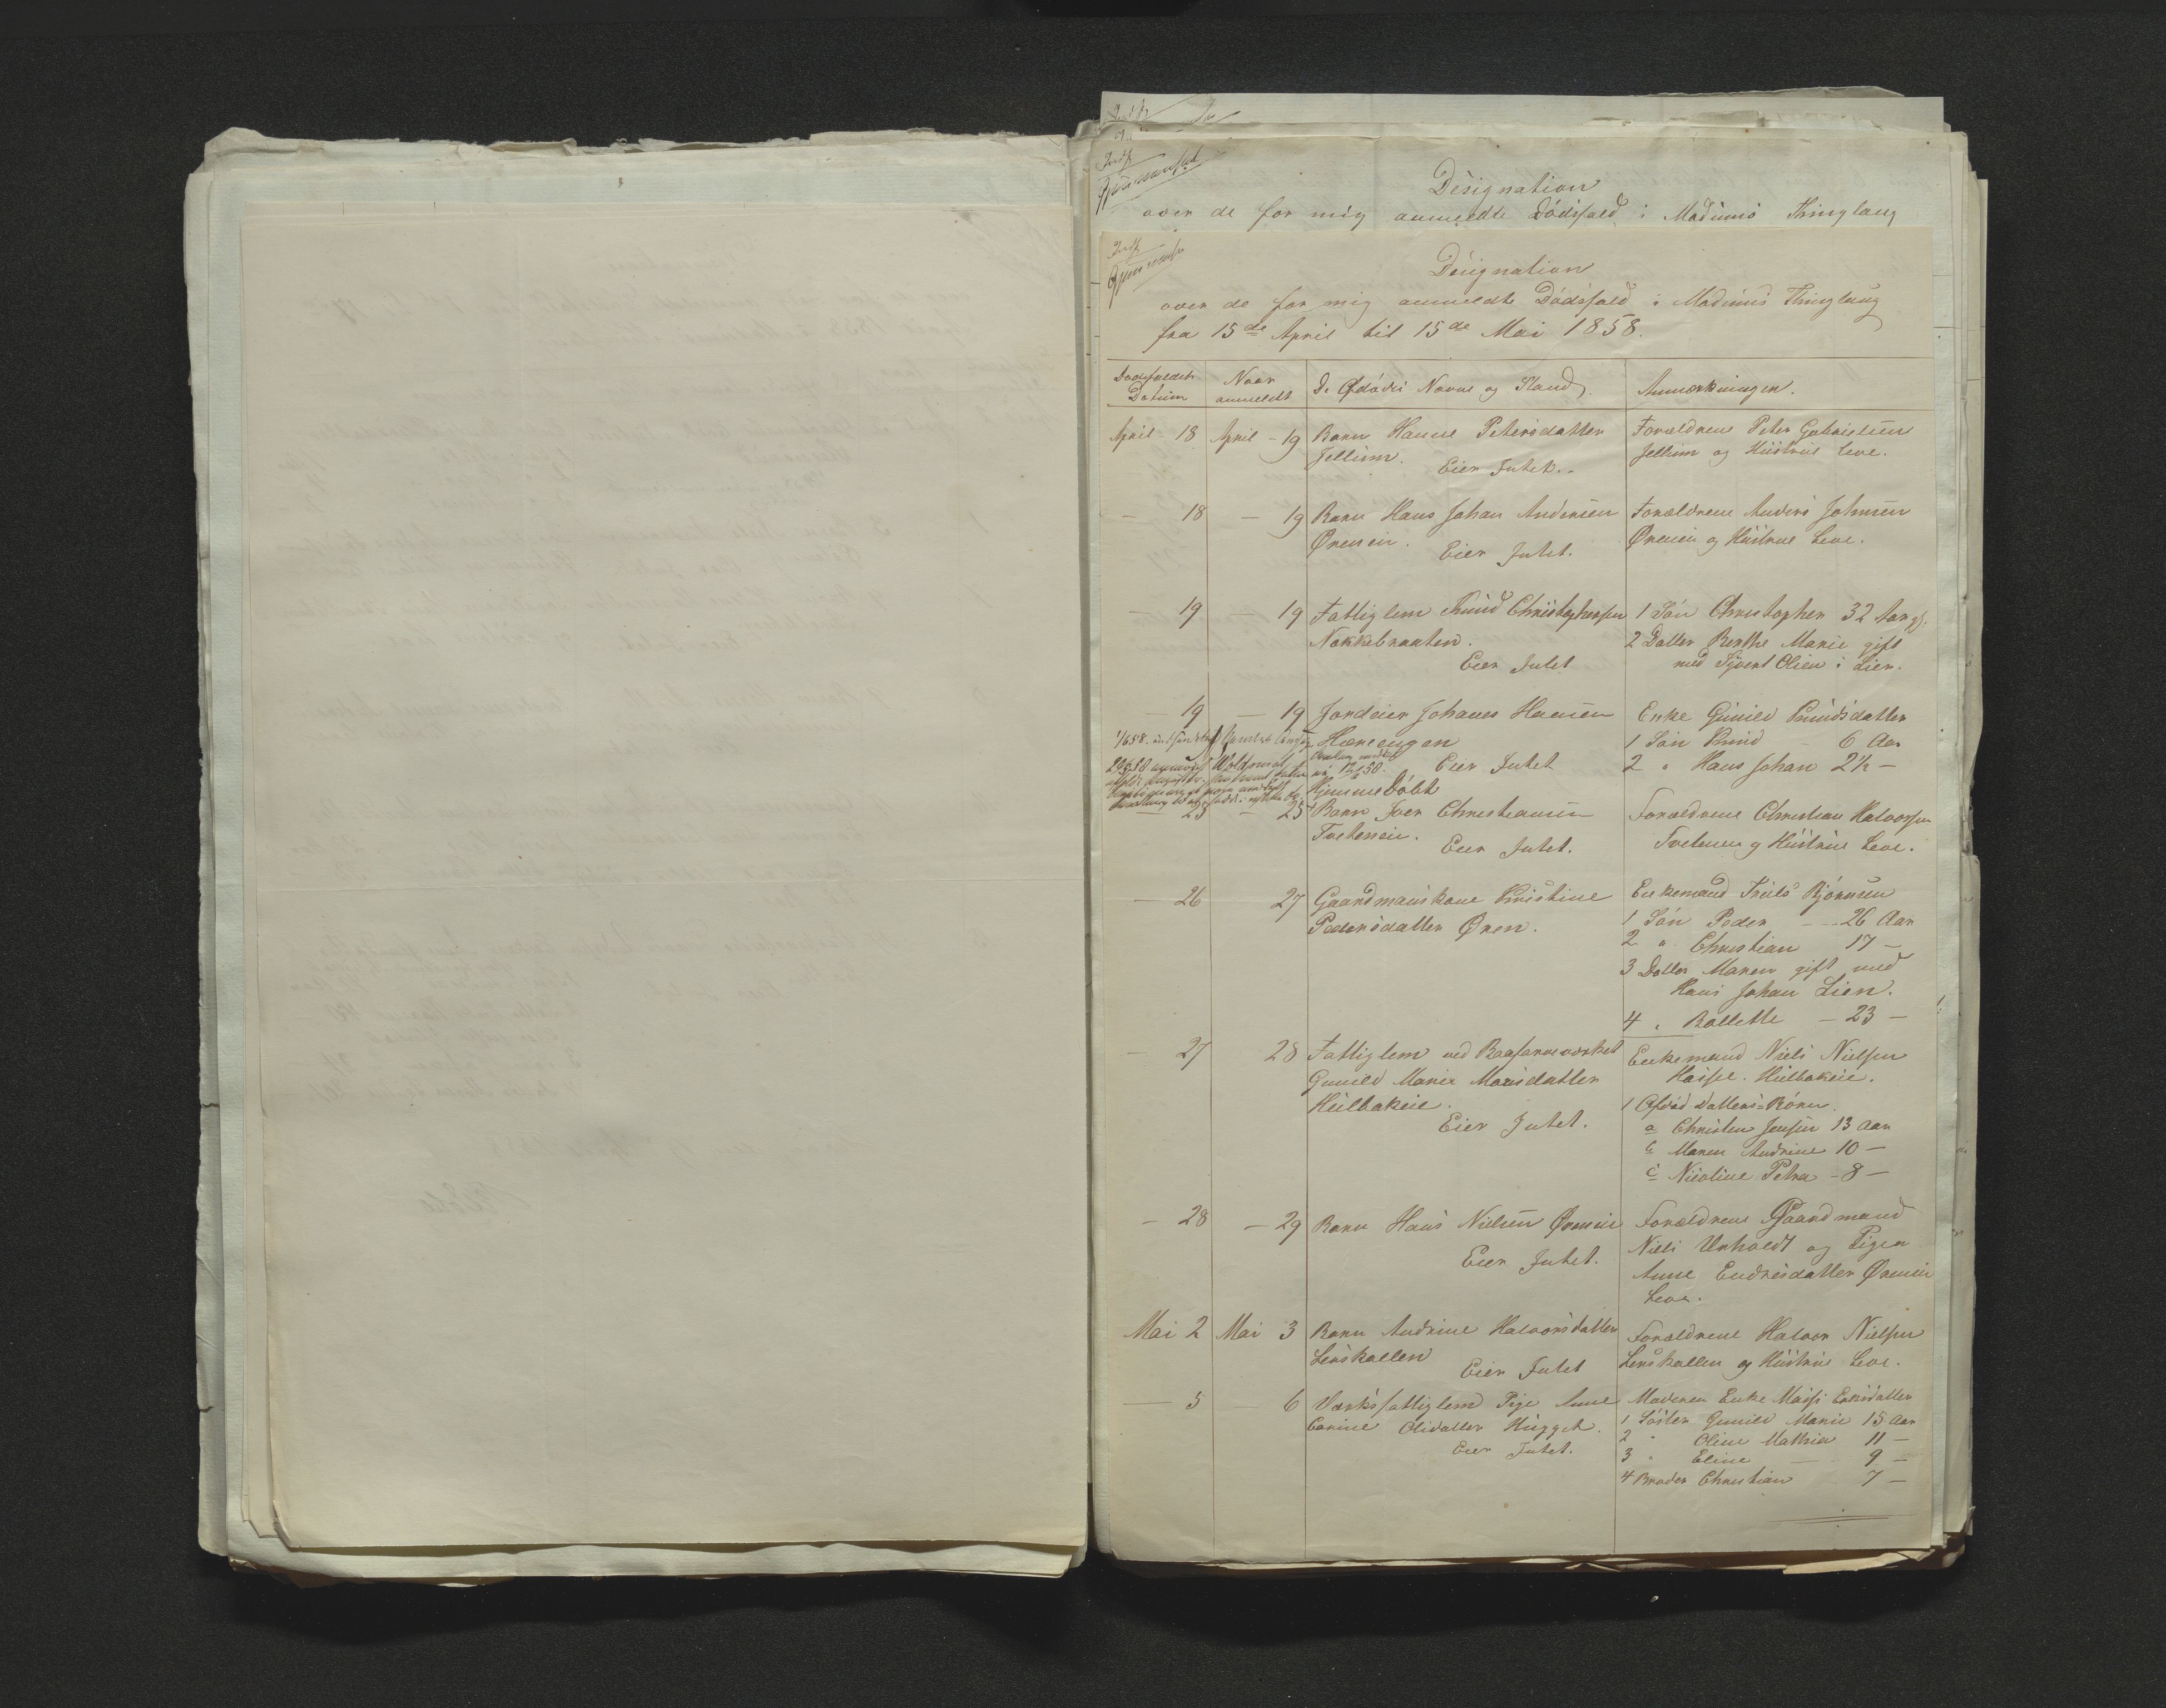 Designation
over de for mig anmeldte Dødsfald i Modums Thinglaug
Designation
over de for mig anmeldte Dødsfald i Modums Thinglaug
fra 15de April til 15de Mai 1858.
Dødsfaldets Datum
Naar anmeldt
De Afdødes Navne og Stand
Anmærkninger.
April - 18 April - 19 Barn Hanne Petersdatter Forældrene Peter Gabrielsen
Jellum. Eier Intet. Jellum og Hustrue Leve.
— 18 — 19 Barn Hans Johan Andersen Forældrene Anders Johnsen
Øreneie. Eier Intet. Øreneie og Hustrue Leve.
— 19 — 19 Fattiglem Knud Christophersen 1 Søn Christopher 32 Aar gl.
Nakkebraaten. 2 Datter Berthe Marie gift
Eier Intet med Sivert Olsen i Lier.
— 19 — 19 Jordeier Johanes Hansen Enke Gunild Knudsdatter
Hæreengen 1 Søn Knud 6 Aar
Eier Intet 2 " Hans Johan 2½ —
Hjemmedøbt
— 25 — 25 Barn Iver Christiansen Forældrene Christian Halvorsen
Tveteneie. Eier Intet. Tvetene og Hustrue Leve.
— 26 27 Gaardmandskone Kristine Enkemand Truls Bjørnsen
Pedersdatter Øren. 1 Søn Peder — 26 Aar
2 " Christian 17 —
3 Datter Maren gift med
Hans Johan Lien.
4 " Bollette — 23 —
— 27 28 Fattiglem ved Blaafarveværket Enkemand Niels Nielsen
Gunild Marie Monsdatter Haisel. Hulbakeie.
Hulbakeie. 1 Afdød Datters Børn
Eier Intet. a Christen Jensen 13 Aar
b Maren Andrine 10 —
c Nicoline Petra - 8 —
— 28 — 29 Barn Hans Nielsen Øreneie Forældrene Gaardmand
Eier Intet. Niels Unholdt og Pigen
Anne Endresdatter Øreneie
Leve.
Mai 2 Mai 3 Barn Andrine Halvorsdatter Forældrene Halvor Nielsen
Lerskallen Eier Intet Lerskallen og Hustrue Leve.
— 5 — 6 Værksfattiglem Pige Anne Moderen Enke Maisi Eriksdatter
Carine Olsdatter Hugget. 1 Søster Gunild Marie 15 Aar
Eier Intet. 2 " Oline Mathia 11 —
3 " Eline — 9 —
4 Broder Christian 7 —